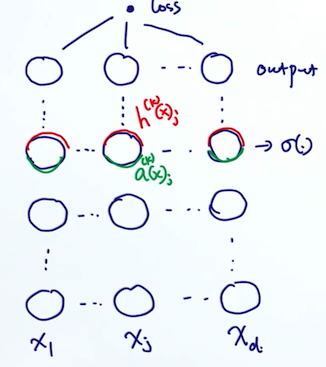 loss
output
h^(k)(x)_j
→ σ(·)
a^(k)(x)_j
x_1 x_j x_d